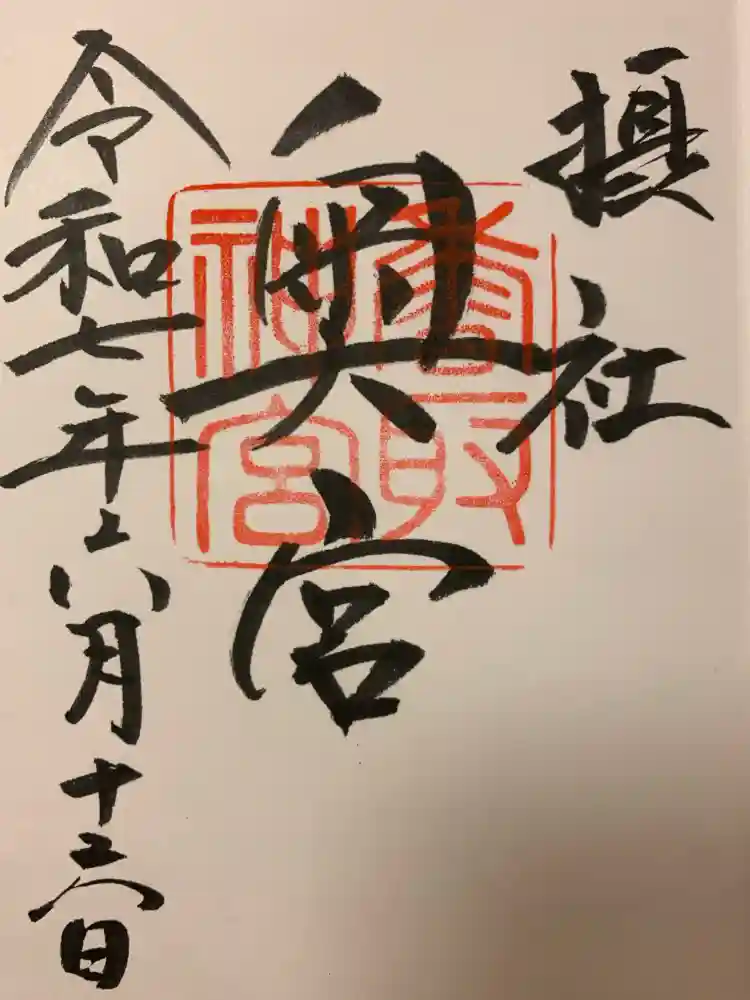 摂社
奥宮
香取
神宮
令和七年六月十六日